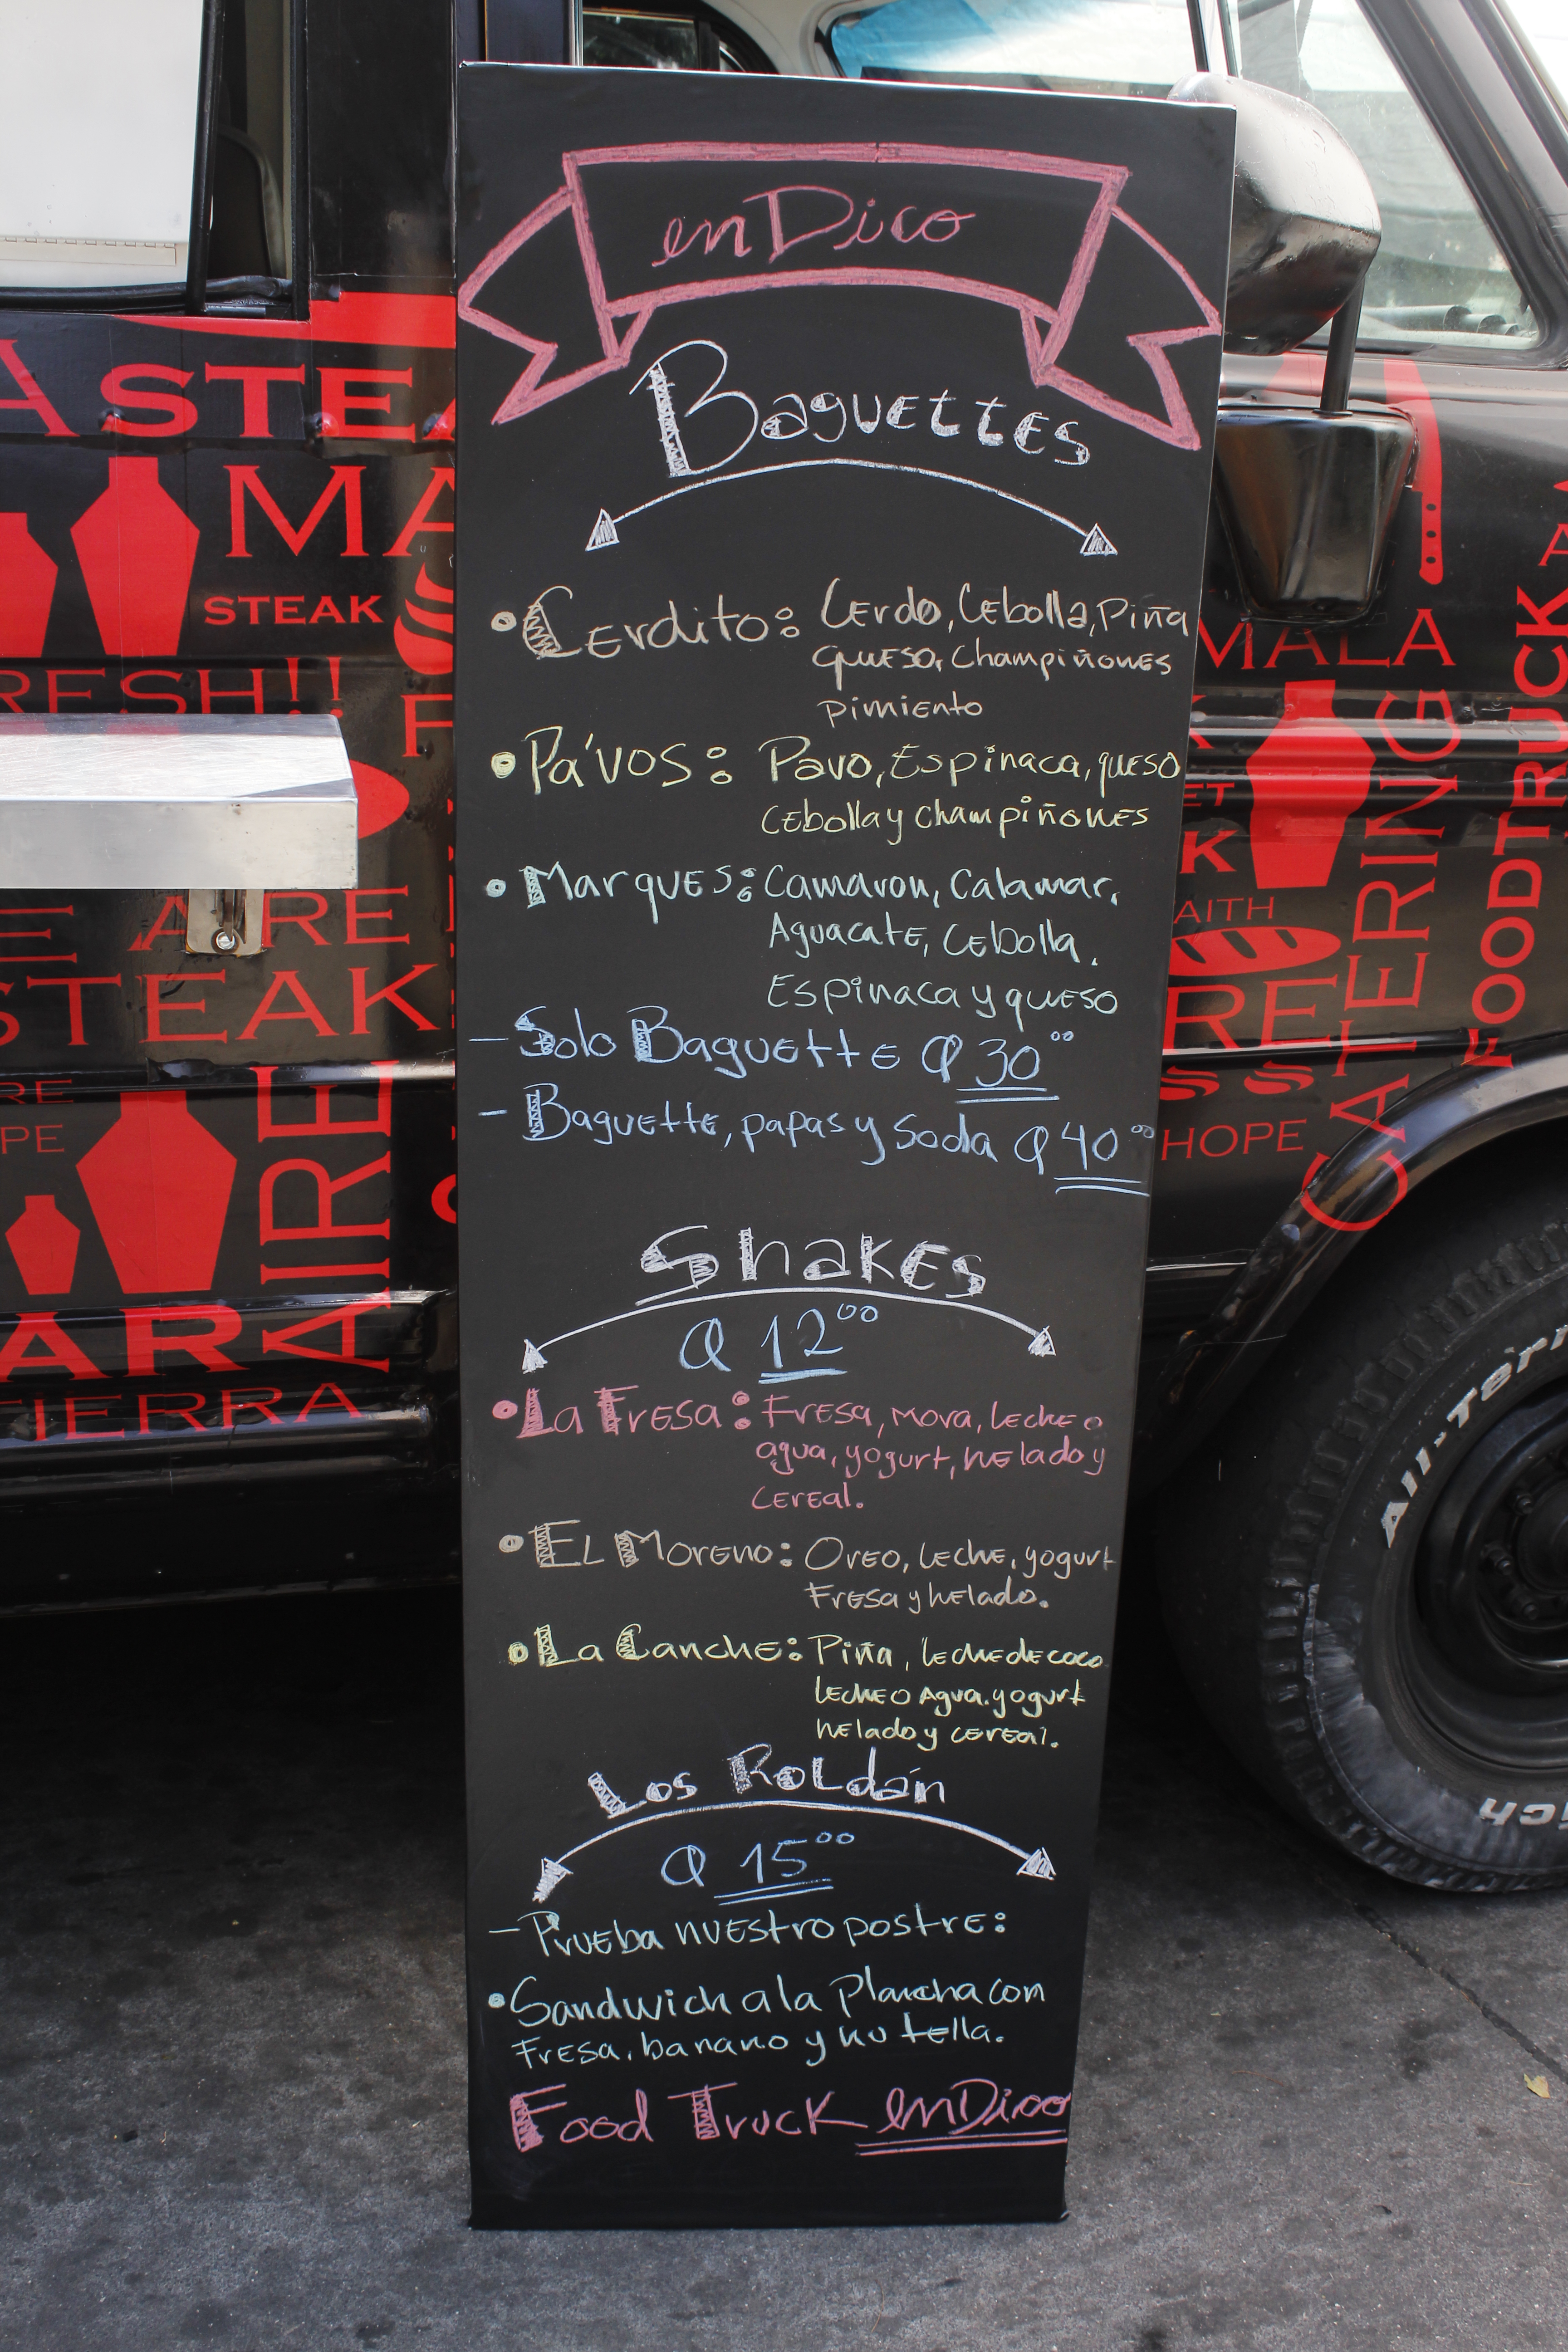 enDico
Baguettes
Cerdito: Cerdo, Cebolla, Piña
queso, Champiñones
pimiento
Pa'vos: Pavo, Espinaca, queso
Cebolla y champiñones
Marques: Camaron, Calamar,
Aguacate, Cebolla,
Espinaca y queso
- Solo Baguette Q 30.00
- Baguette, papas y soda Q 40.00
Shakes
Q 12.00
La Fresa: Fresa, mora, leche o
agua, yogurt, helado y
cereal.
El Moreno: Oreo, leche, yogurt
Fresa y helado.
La Canche: Piña, leche de coco
leche o Agua, yogurt
helado y cereal.
Los Roldán
Q 15.00
- Prueba nuestro postre:
Sandwich a la plancha con
Fresa, banano y nutella.
Food Truck enDico
STEA
MA
STEAK
RESH!!
F
E ARE
STEAK
AIRE
RE
PE
AR
TIERRA
MALA
CATERING
FOODTRUCK
ET
K
AITH
RE
HOPE
All-Terr
ich